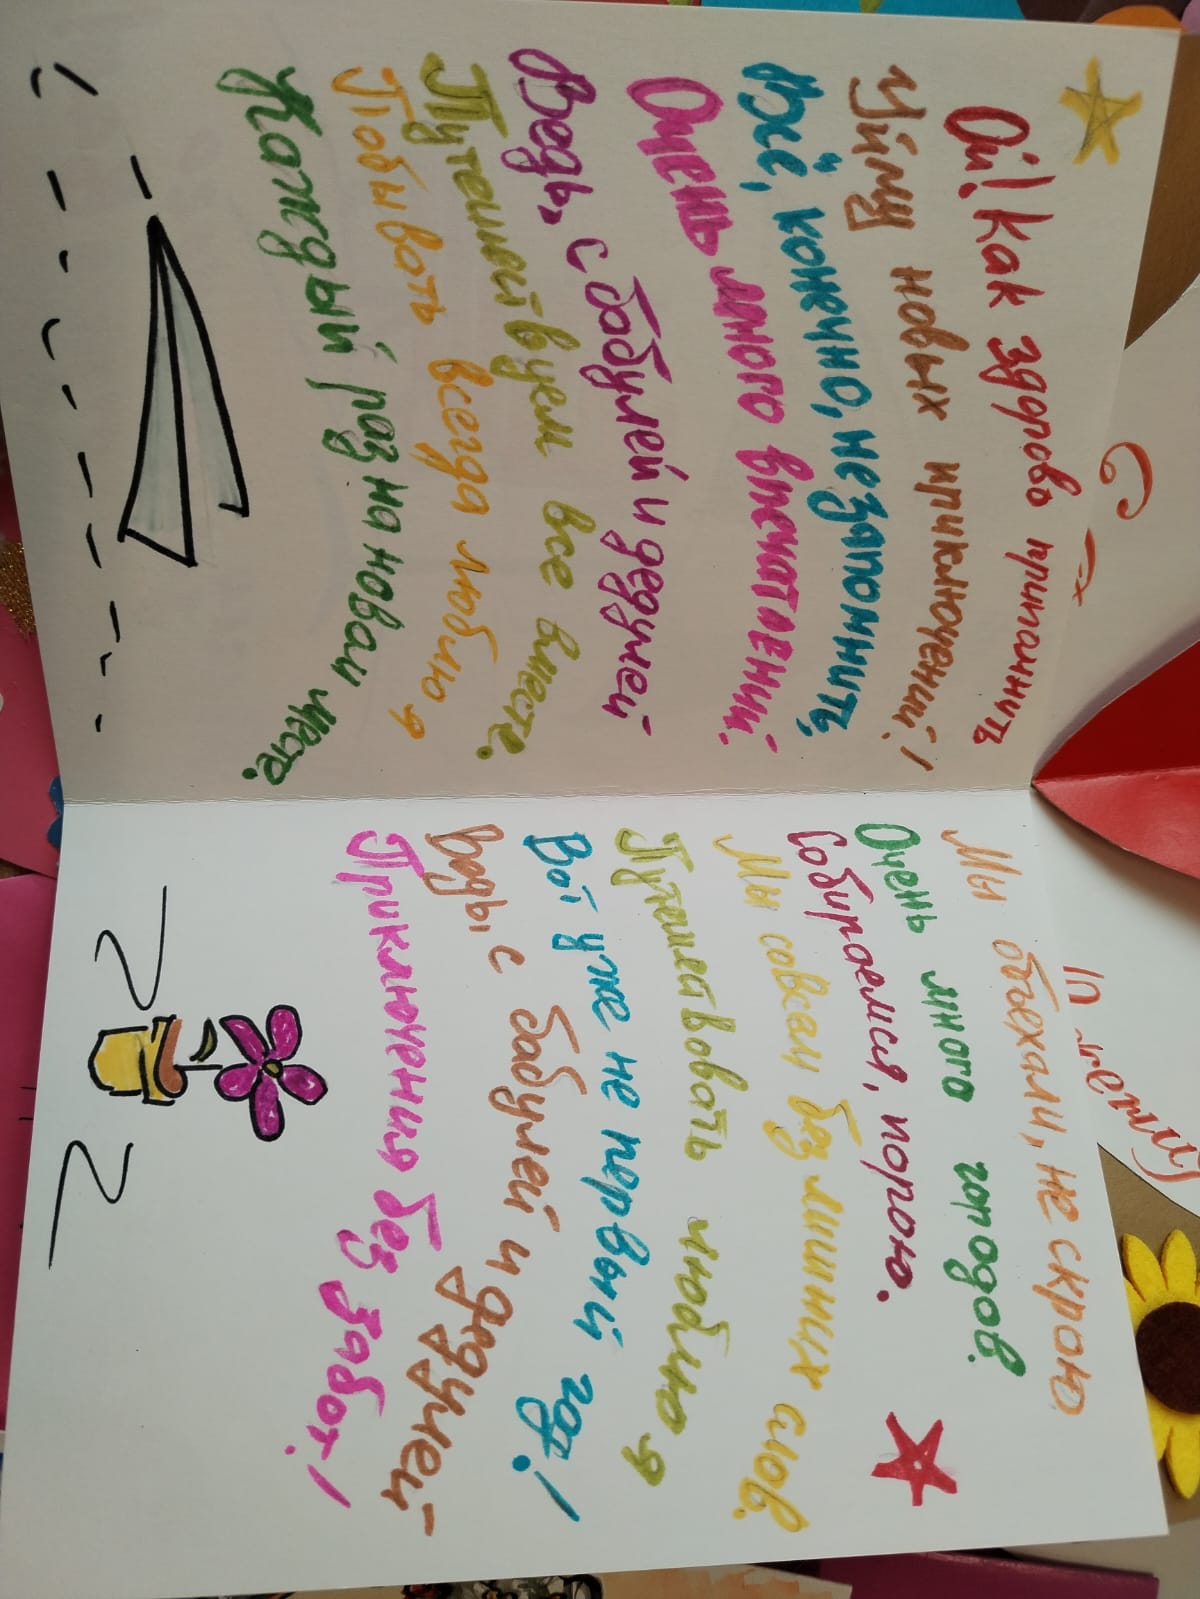 Ой! Как здорово припомнить
Уйму новых приключений!
Всё, конечно, незапомнить,
Очень много впечатлений.
Ведь, с бабулей и дедулей
Путешествуем все вместе.
Побывать всегда люблю я
Каждый раз на новом месте.
Мы объехали, не скрою
Очень много городов.
Собираемся, порою.
Мы совсем без лишних слов.
Путешествовать люблю я
Вот уже не первый год!
Ведь, с бабулей и дедулей
Приключения без забот!